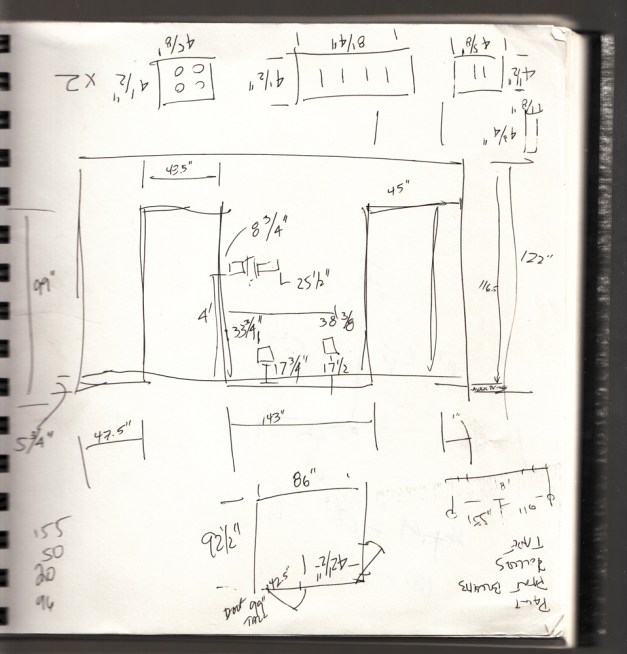 4 5/8
8 1/4"
4 5/8
x 2
4 1/2"
4 1/2"
4 1/2"
4 3/4"
43.5"
45"
8 3/4"
25 1/2"
122"
116.5
99"
4'
33 3/4"
38 3/8
17 3/4"
17 1/2
5 3/4"
47.5"
143"
1"
86"
92 1/2"
42 1/2"
42.5"
Door 99"
Tall
155
50
20
96
155"
110
Paint
Paint Brushes
Rollers
Tape